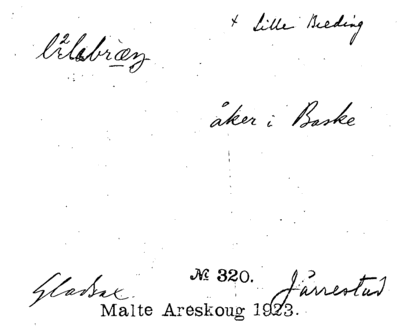 + Lille Breding
åker i Baske
№ 320.
Gladsax Järrestad
Malte Areskoug 1923.